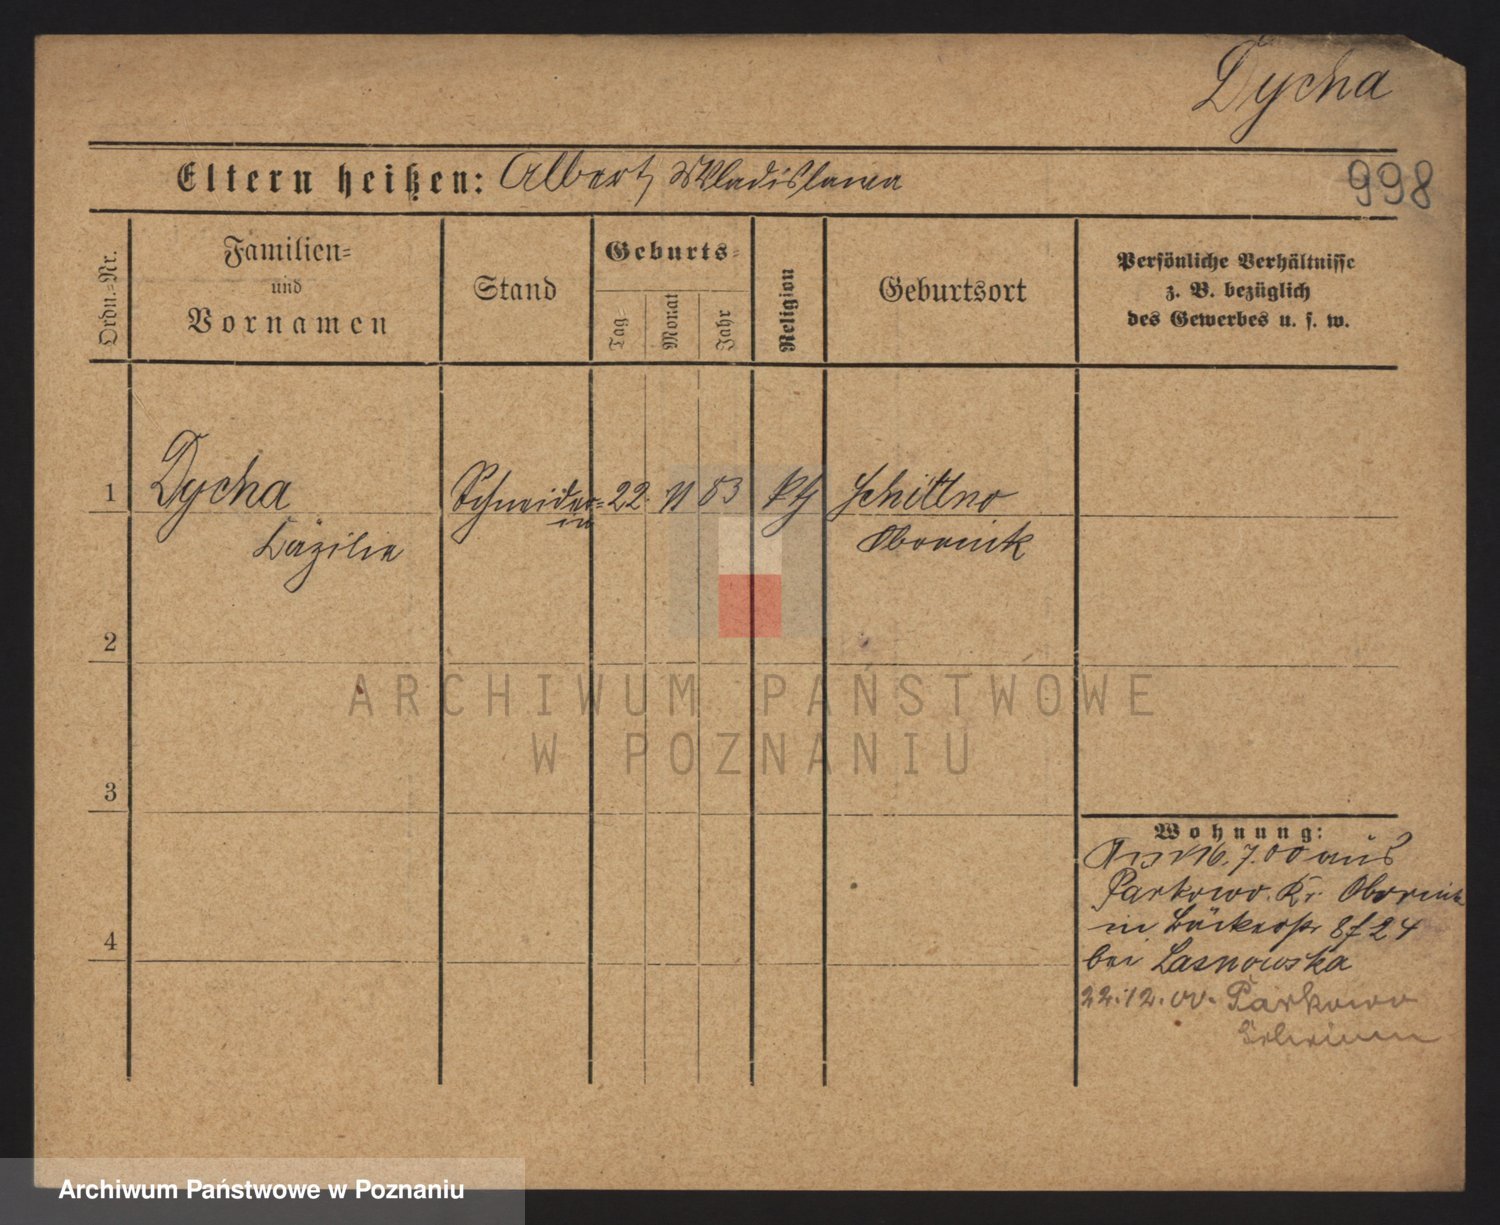 Dycha
Eltern heißen: Albert, Wladislawa
998
Ordn.-Nr.
Familien-
und
Vornamen
Stand
Geburts-
Tag-
Monat
Jahr
Religion
Geburtsort
Persönliche Verhältnisse
z. B. bezüglich
des Gewerbes u. s. w.
1
Dycha
Schneider-
in
22. 11 83
kth
Schittno
Cäzilie
Obornik
2
ARCHIWUM PAŃSTWOWE
W POZNANIU
3
Wohnung:
16.7.00 aus
Parkowo. Kr. Obornik
in Bäckerstr 8f24
bei Lasnowska
4
22.12.00. Parkowo
Archiwum Państwowe w Poznaniu